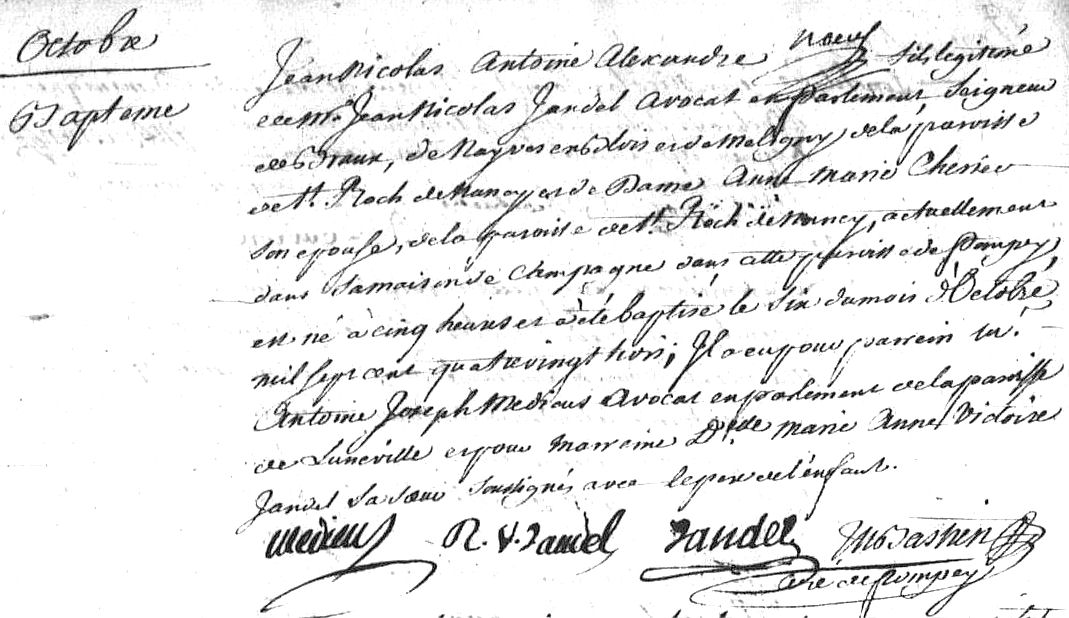 Octobre
Bapteme
Jean Nicolas Antoine Alexandre fils legitime
de Mr. Jean Nicolas Jandel avocat en parlement, Seigneur
de Braux, de Nayves en Blois et de Meligny de la paroisse
de St. Roch de Nancy et de Dame Anne Marie
son epouse, de la paroisse de St. Roch de Nancy, actuellement
dans sa maison de Campagne dans cette paroisse de Pompey,
est né à cinq heures et a été baptisé le six du mois d'Octobre,
mil sept cent quatre vingt trois; Il a eu pour parrein
Antoine Joseph Medicus avocat en parlement de la paroisse
de Luneville et pour marreine Marie Anne Victoire
Jandel sa soeur soussignés avec le pere de l'enfant.
Medicus Jandel Jandel
curé de Pompey